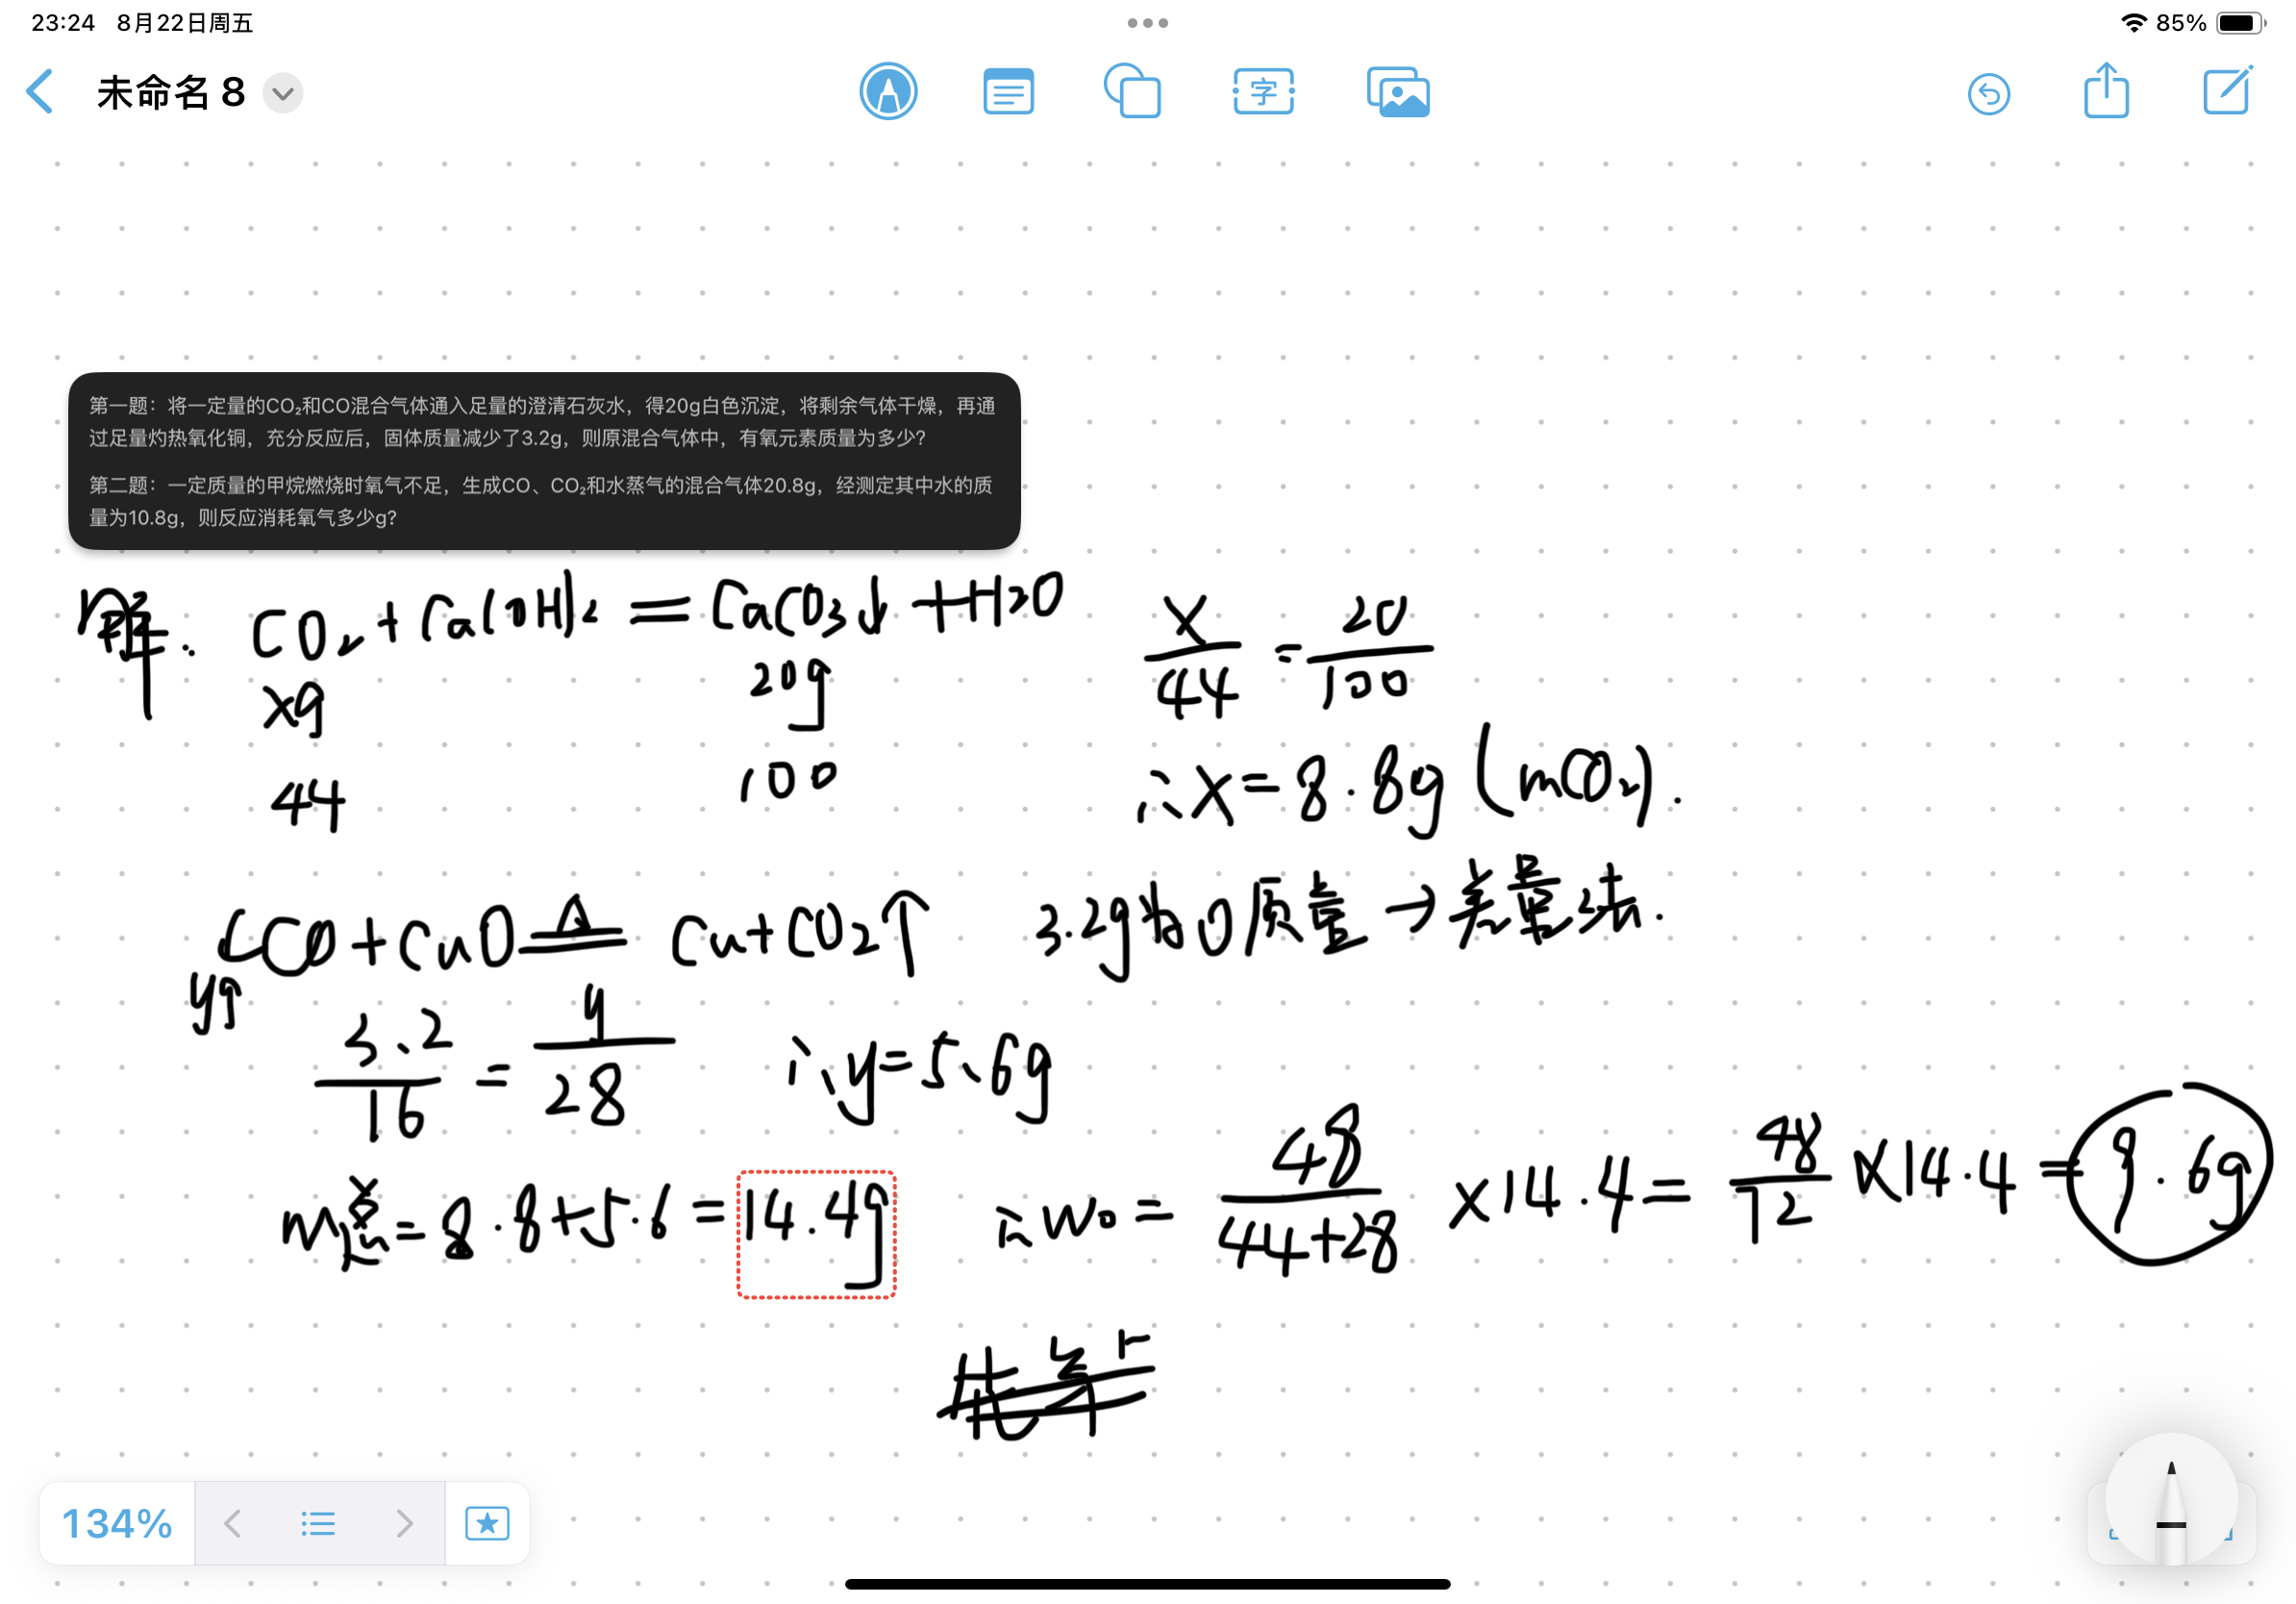 23:24 8月22日周五
85%
未命名 8
字
第一题：将一定量的CO₂和CO混合气体通入足量的澄清石灰水，得20g白色沉淀，将剩余气体干燥，再通
过足量灼热氧化铜，充分反应后，固体质量减少了3.2g，则原混合气体中，有氧元素质量为多少？
第二题：一定质量的甲烷燃烧时氧气不足，生成CO、CO₂和水蒸气的混合气体20.8g，经测定其中水的质
量为10.8g，则反应消耗氧气多少g？
解: CO₂+Ca(OH)₂ = CaCO₃↓+H2O
xg 20g
44 100
x/44 = 20/100
∴x=8.8g (mCO₂).
CO+CuO =Δ= Cu+CO₂↑ 3.2g为O质量→差量法.
yg
3.2/16 = y/28 ∴y=5.6g
m总=8.8+5.6=14.4g ∴wo = 48/(44+28) ×14.4= 48/72 ×14.4 =9.6g
134%